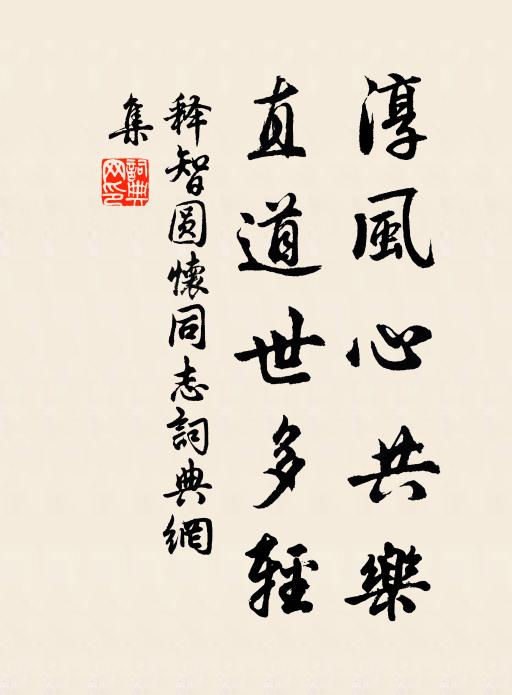 淳風心共樂
直道世多輕
释智圆懷同志詞典網
集
詞典网印